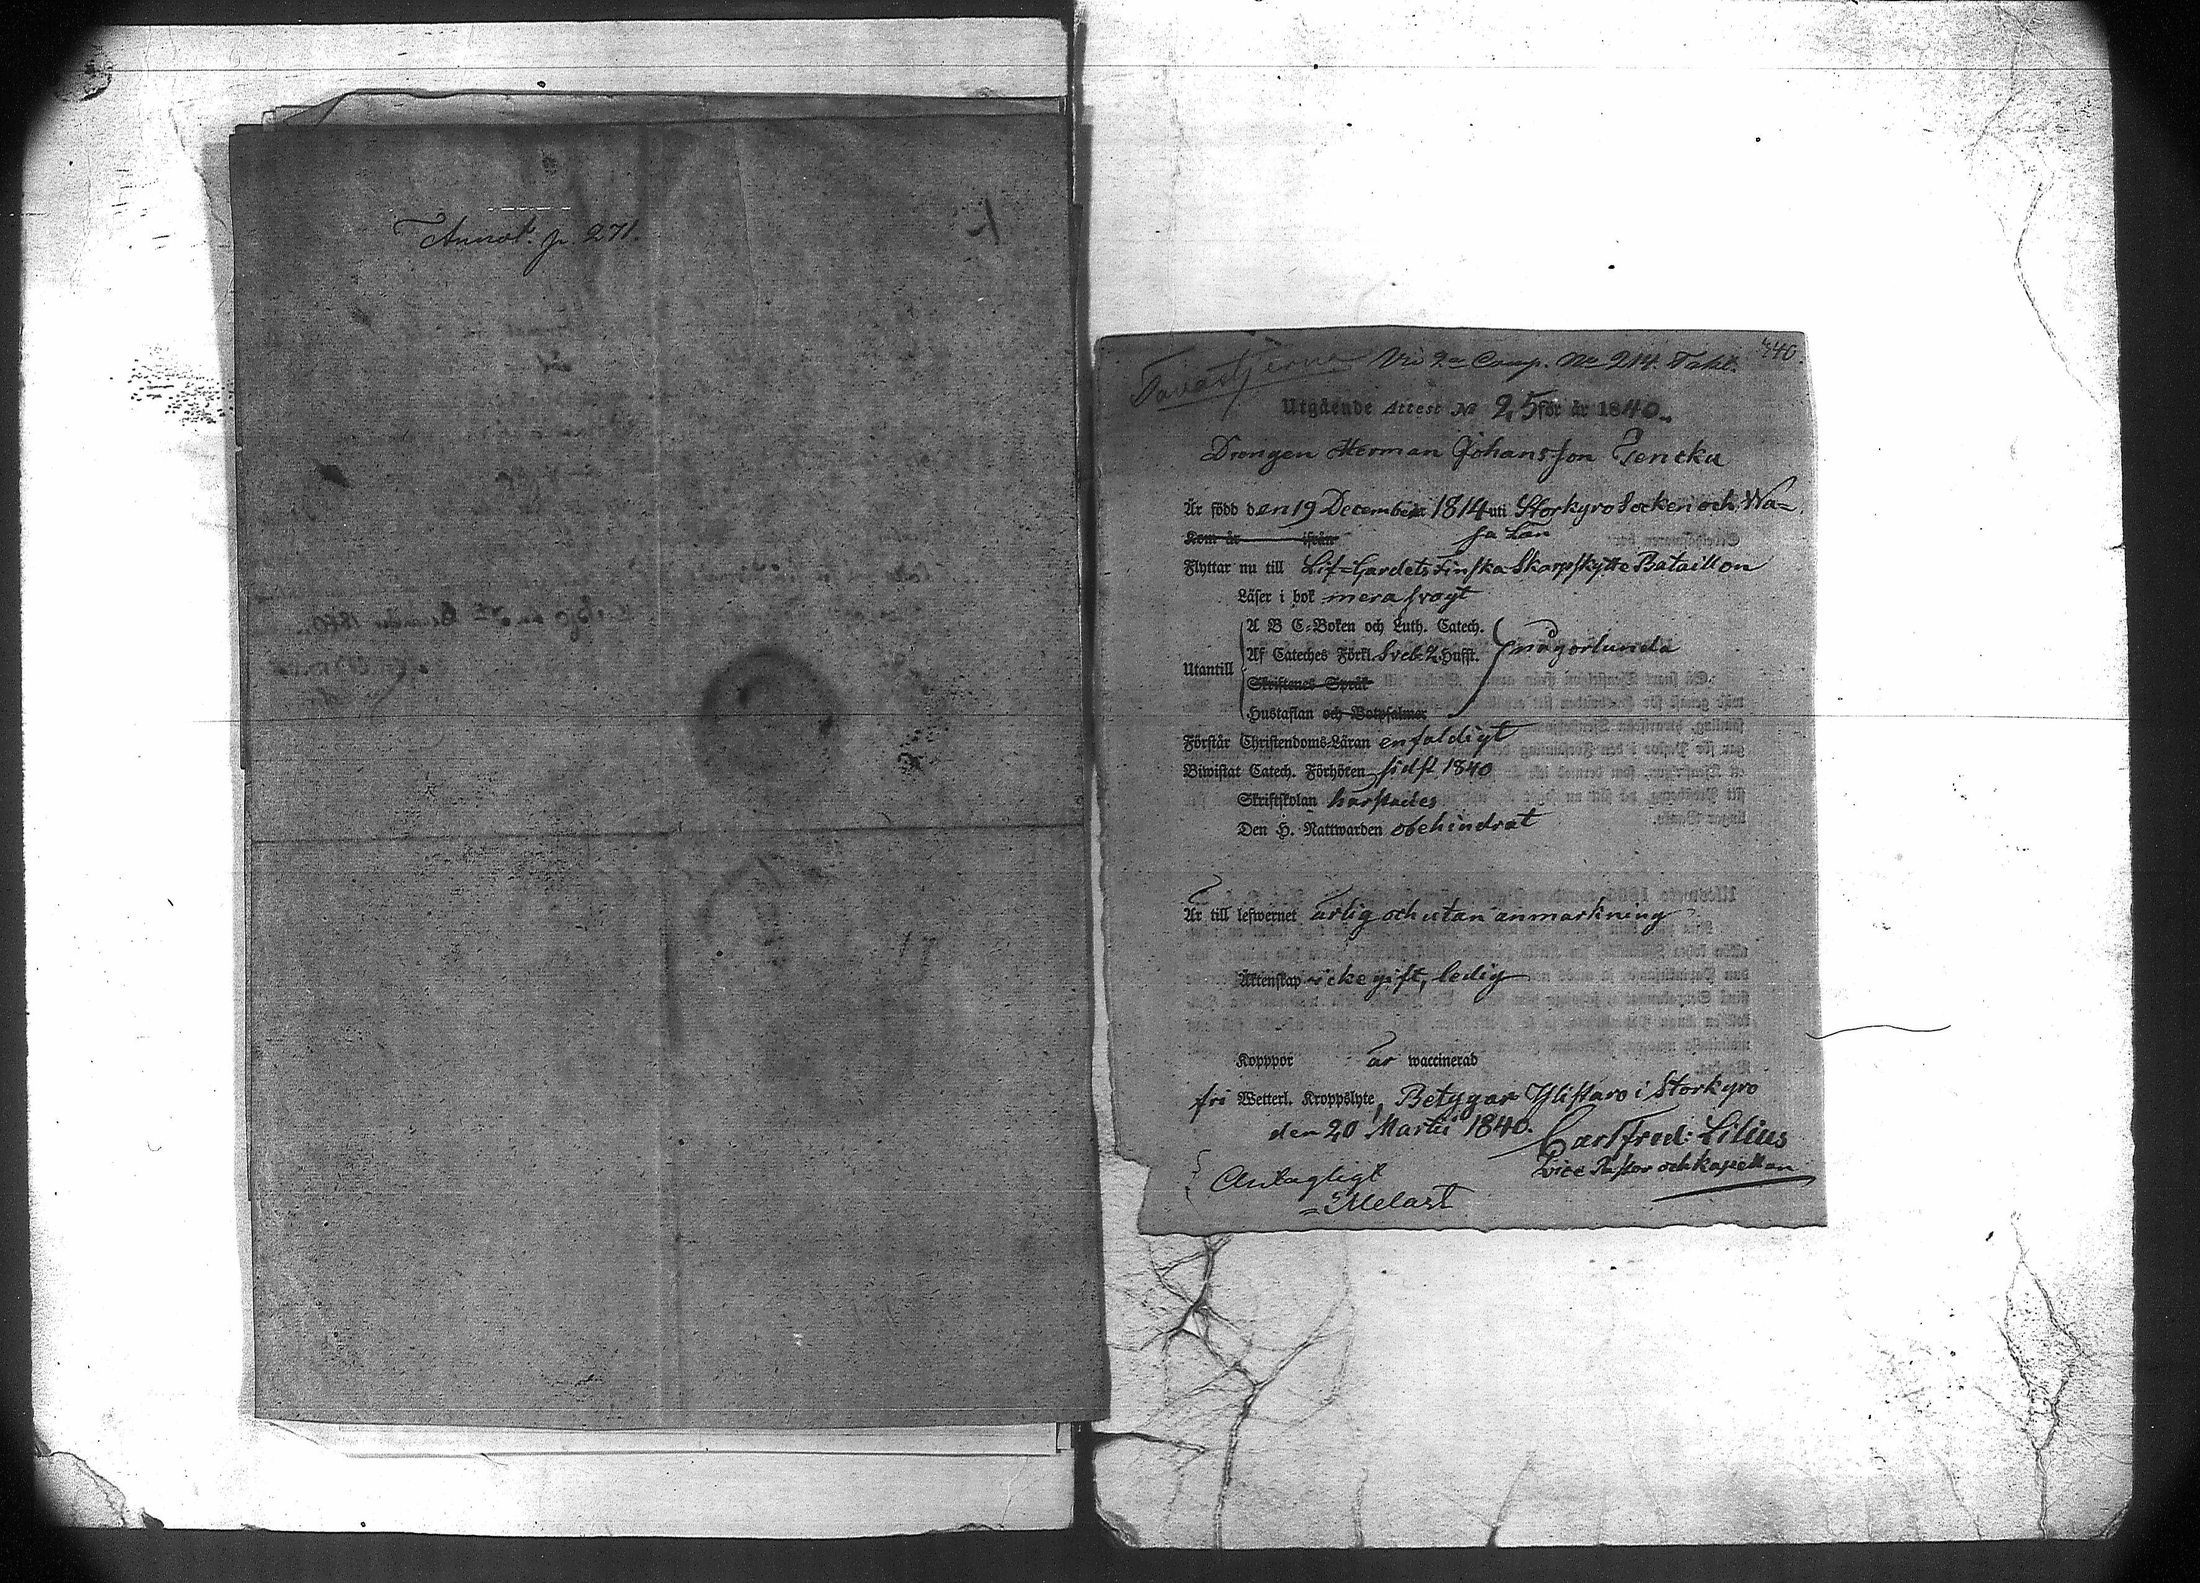 Annot. p. 271.
Tavastjerna Vid 2:a Comp. No 214. Tahl. 440
Utgående Attest No 25 för år 1840.
Drengen Herman Johansson Jencku
Är född den 19 December 1814 uti Storkyro Socken och Wa-
Kom år ifrån sa Län
Flyttar nu till Lif-Gardets Finska Skarpskytte Bataillon
Läser i bok mera svagt
A B C-Boken och Luth. Catech.
Utantill Af Cateches Förkl. Sveb. 2. Hufst. någorlunda
Skriftenes Språk
Hustaflan och Botpsalmer
Förstår Christendoms-Läran enfaldigt
Biwistat Catech. Förhören sidst 1840
Skriftskolan harstädes
Den H. Nattwarden obehindrat
Är till lefwernet ärlig och utan anmärkning
Äktenskap icke gift, ledig
Kopppor är waccinerad
fri Wetterl. Kroppslyte, Betygar Ylistaro i Storkyro
den 20 Martii 1840. Carl Fred: Lilius
Vice Pastor och Kapellan
Antagligt
Melart